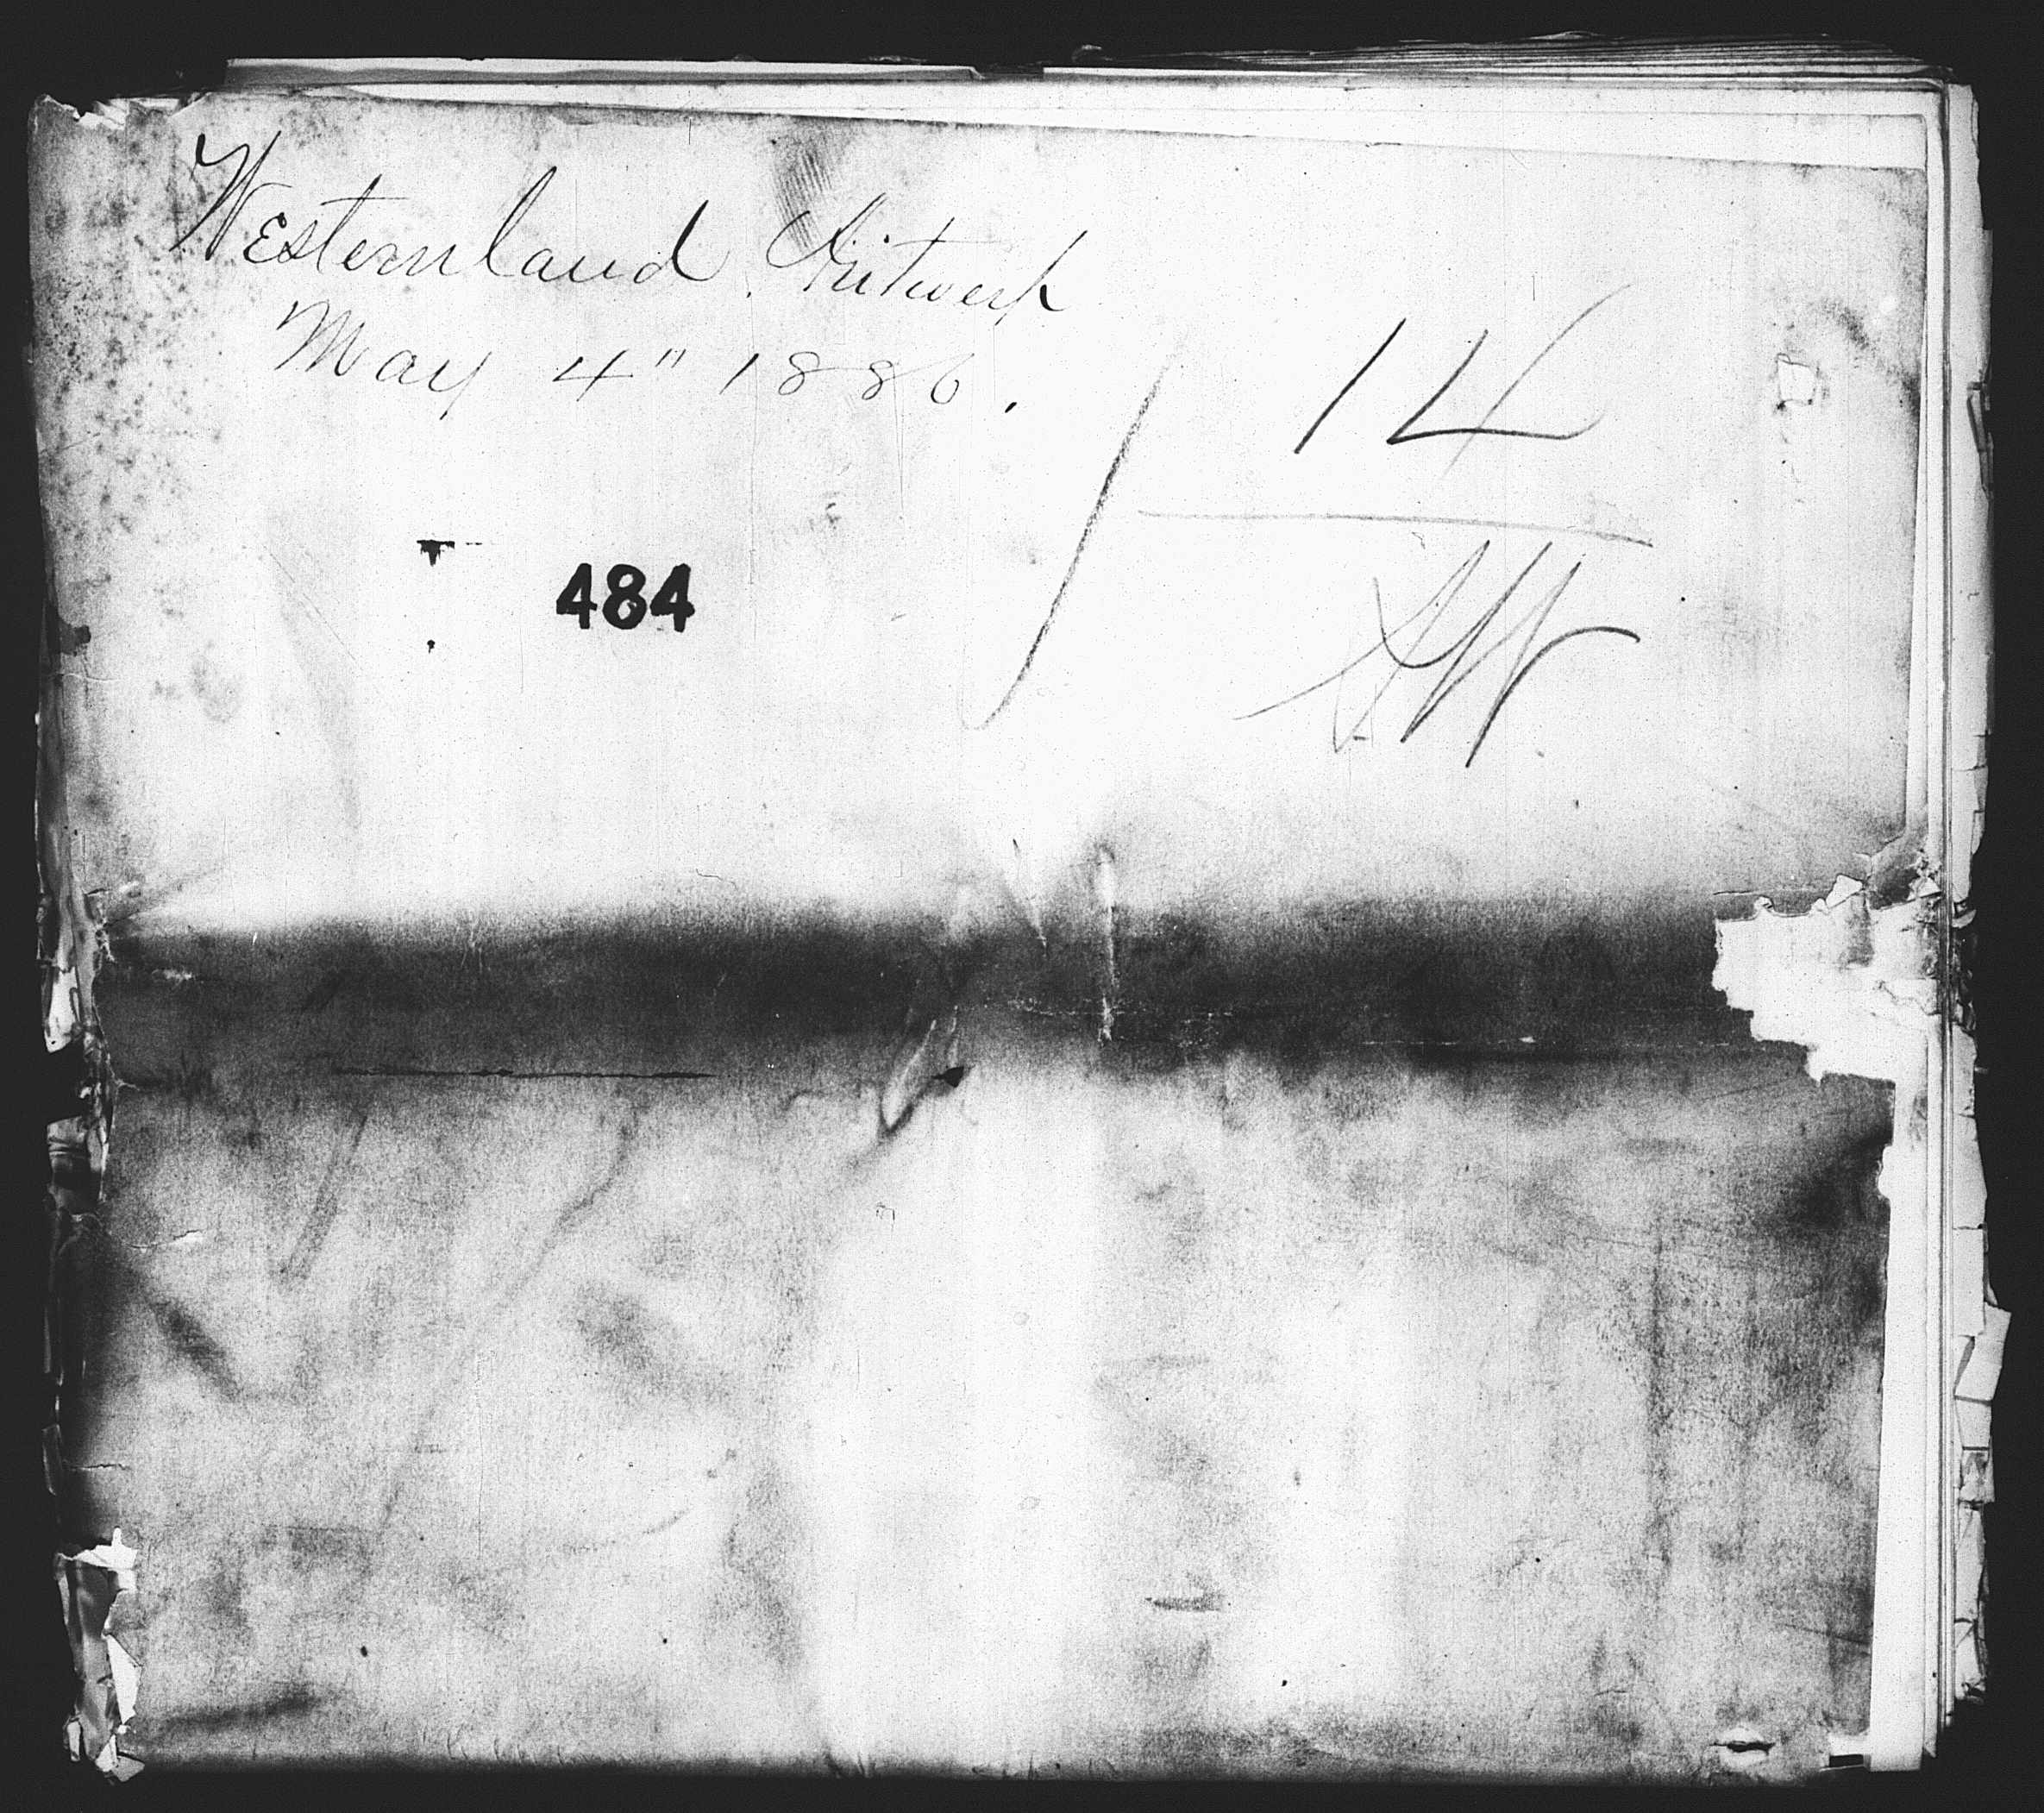 Westernland. Antwerp
May 4" 1886.
14
484